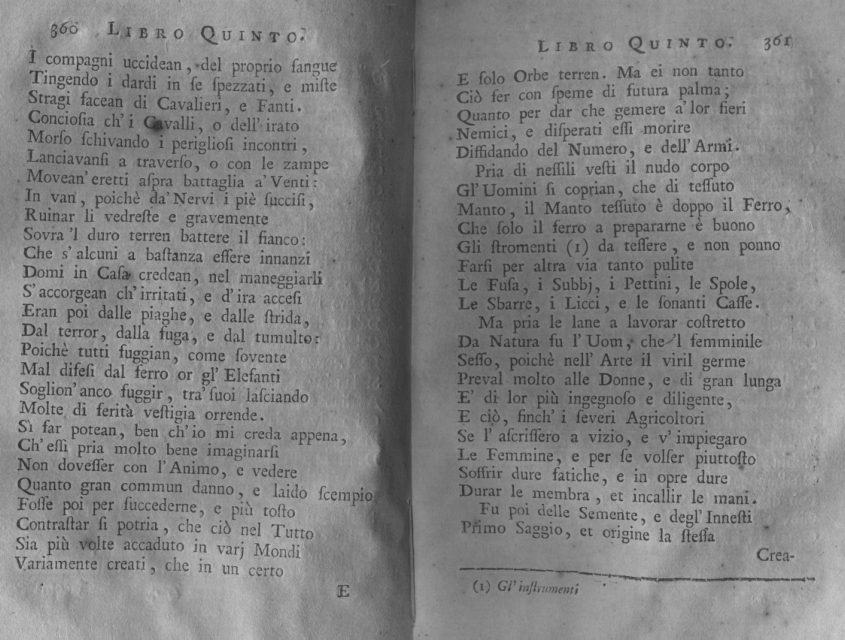 360 LIBRO QUINTO.
I compagni uccidean, del proprio ſangue
Tingendo i dardi in ſe ſpezzati, e miſte
Stragi facean di Cavalieri, e Fanti.
Concioſia ch'i Cavalli, o dell'irato
Morſo ſchivando i periglioſi incontri,
Lanciavanſi a traverſo, o con le zampe
Movean'eretti aſpra battaglia a'Venti:
In van, poichè da'Nervi i piè ſucciſi,
Ruinar li vedreſte e gravemente
Sovra'l duro terren battere il fianco:
Che s'alcuni a baſtanza eſſere innanzi
Domi in Caſa credean, nel maneggiarli
S'accorgean ch'irritati, e d'ira acceſi
Eran poi dalle piaghe, e dalle ſtrida,
Dal terror, dalla fuga, e dal tumulto:
Poichè tutti fuggian, come ſovente
Mal difeſi dal ferro or gl'Elefanti
Soglion'anco fuggir, tra'ſuoi laſciando
Molte di ferità veſtigia orrende.
Sì far potean, ben ch'io mi creda appena,
Ch'eſſi pria molto bene imaginarſi
Non doveſſer con l'Animo, e vedere
Quanto gran commun danno, e laido ſcempio
Foſſe poi per ſuccederne, e più toſto
Contraſtar ſi potria, che ciò nel Tutto
Sia più volte accaduto in varj Mondi
Variamente creati, che in un certo
E
LIBRO QUINTO. 361
E ſolo Orbe terren. Ma ei non tanto
Ciò fer con ſpeme di futura palma;
Quanto per dar che gemere a'lor fieri
Nemici, e diſperati eſſi morire
Diffidando del Numero, e dell'Armi.
Pria di neſſili veſti il nudo corpo
Gl'Uomini ſi coprian, che di teſſuto
Manto, il Manto teſſuto è doppo il Ferro,
Che ſolo il ferro a prepararne è buono
Gli ſtromenti (1) da teſſere, e non ponno
Farſi per altra via tanto pulite
Le Fuſa, i Subbj, i Pettini, le Spole,
Le Sbarre, i Licci, e le ſonanti Caſſe.
Ma pria le lane a lavorar coſtretto
Da Natura fu l'Uom, che'l femminile
Seſſo, poichè nell'Arte il viril germe
Preval molto alle Donne, e di gran lunga
E' di lor più ingegnoſo e diligente,
E ciò, finch'i ſeveri Agricoltori
Se l'aſcriſſero a vizio, e v'impiegaro
Le Femmine, e per ſe volſer piuttoſto
Soffrir dure fatiche, e in opre dure
Durar le membra, et incallir le mani.
Fu poi delle Semente, e degl'Inneſti
Primo Saggio, et origine la ſteſſa
Crea-
(1) Gl'inſtrumenti